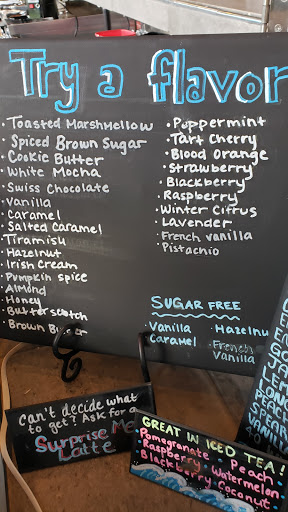 Try a flavor
• Toasted Marshmellow
• Spiced Brown Sugar
• Cookie Butter
• White Mocha
• Swiss Chocolate
• Vanilla
• Caramel
• Salted Caramel
• Tiramisu
• Hazelnut
• Irish Cream
• Pumpkin spice
• Almond
• Honey
• Butterscotch
• Brown Butter
• Peppermint
• Tart Cherry
• Blood Orange
• Strawberry
• Blackberry
• Raspberry
• Winter Citrus
• Lavender
• French vanilla
• Pistachio
SUGAR FREE
• Vanilla • Hazelnu
Caramel • French
Vanilla
Can't decide what
to get? Ask for a
Surprise Me
Latte
GREAT IN ICED TEA!
Pomegranate • Peach
Raspberry • Watermelon
Blackberry • Coconut